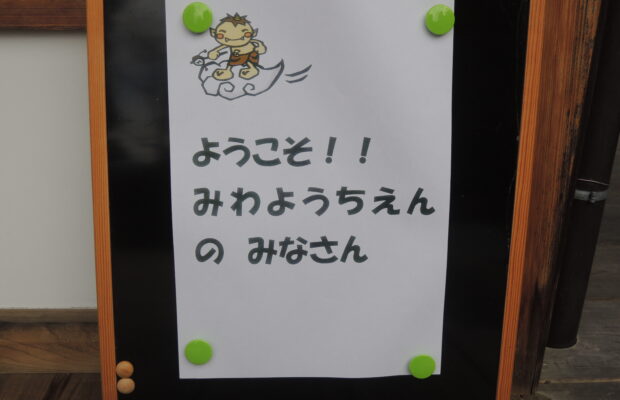 ようこそ！！
みわようちえん
の みなさん